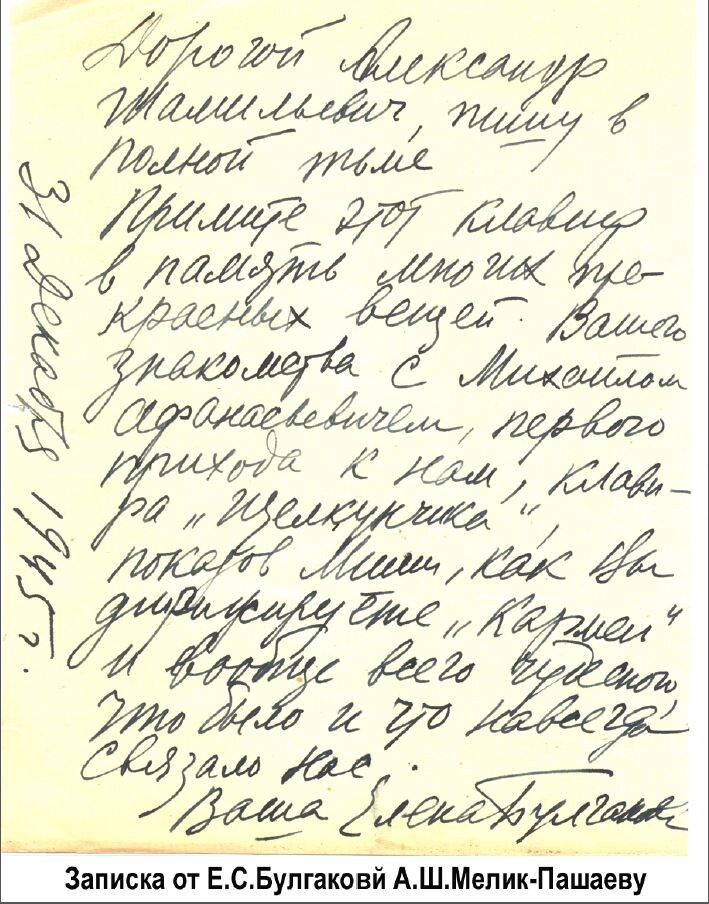 Дорогой Александр
Шамильевич, пишу в
полной тьме
Примите этот клавир
в память многих пре-
красных вещей. Вашего
знакомства с Михаилом
Афанасьевичем, первого
прихода к нам, клави-
ра „Щелкунчика“,
показов Миши, как Вы
дирижируете „Кармен“
и вообще всего чудесного,
что было и что навсегда
связало нас.
Ваша Елена Булгакова
31 декабря 1945 г.
Записка от Е.С.Булгаковй А.Ш.Мелик-Пашаеву